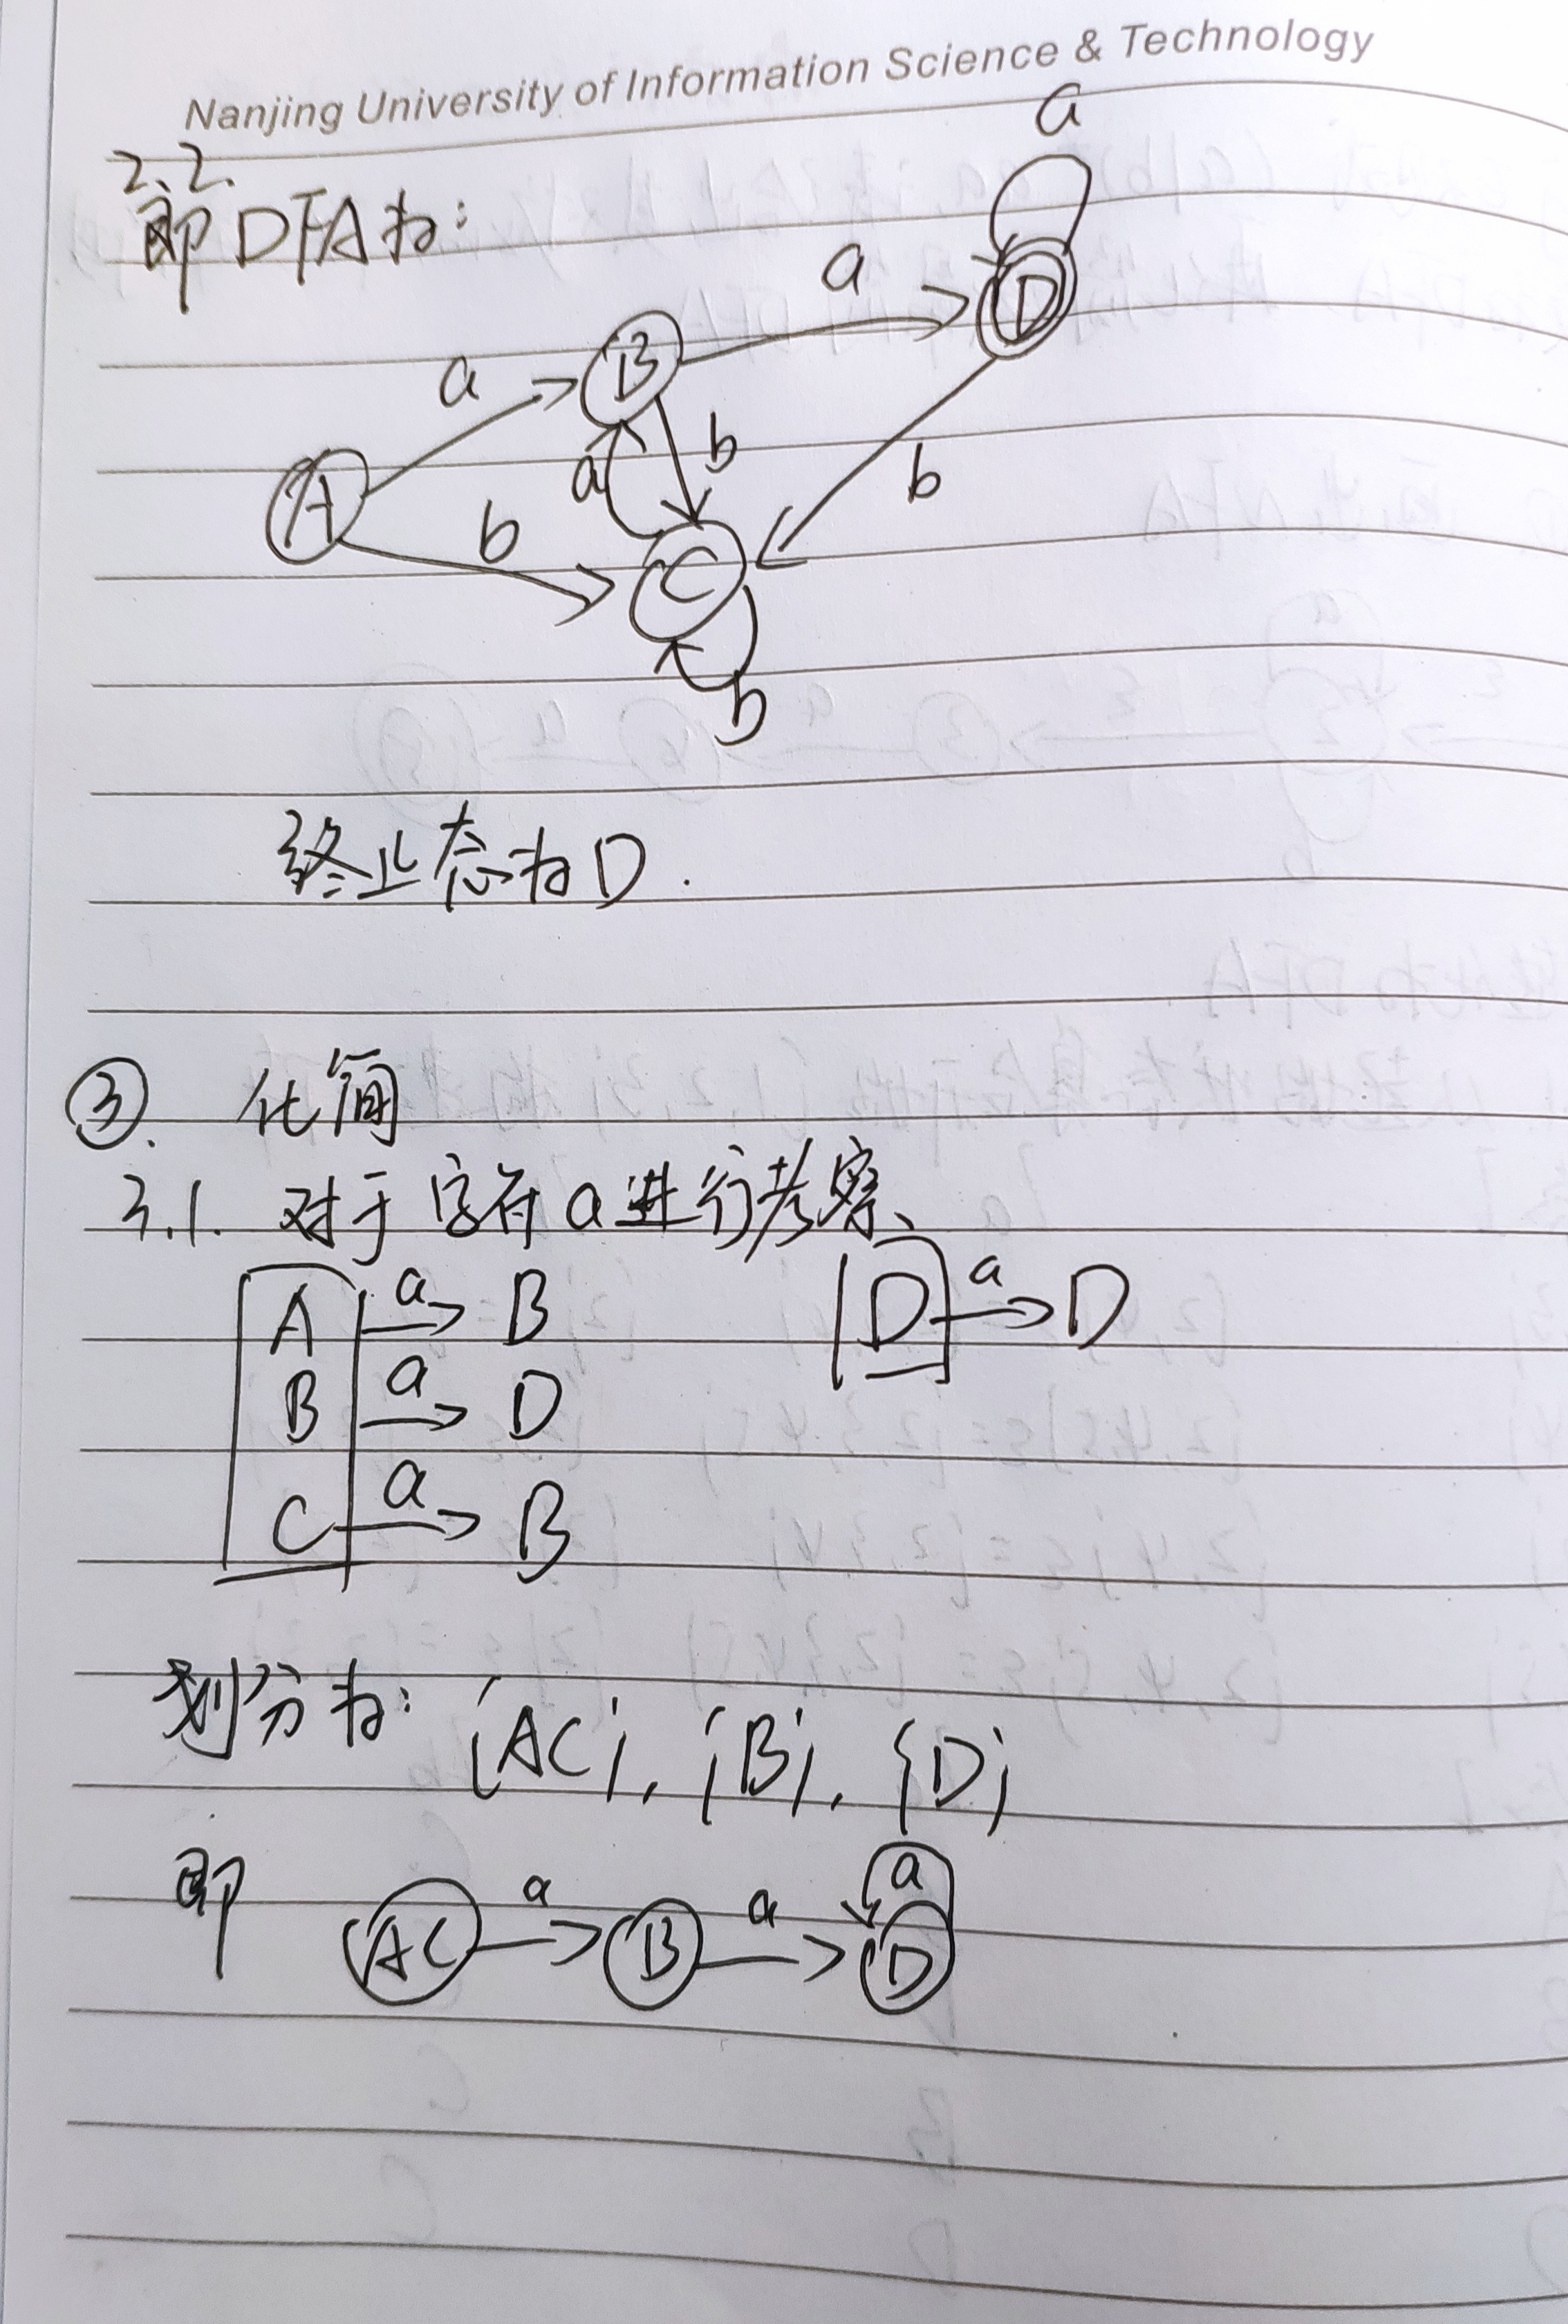 Nanjing University of Information Science & Technology
2.2.
即DFA为:
a
a
D
B
a
b
a
b
A
b
C
b
终止态为D.
③. 化简
3.1. 对于字符a进行考察、
A a B D a D
B a D
C a B
划分为: {AC}, {B}, {D}
即 AC a B a D a